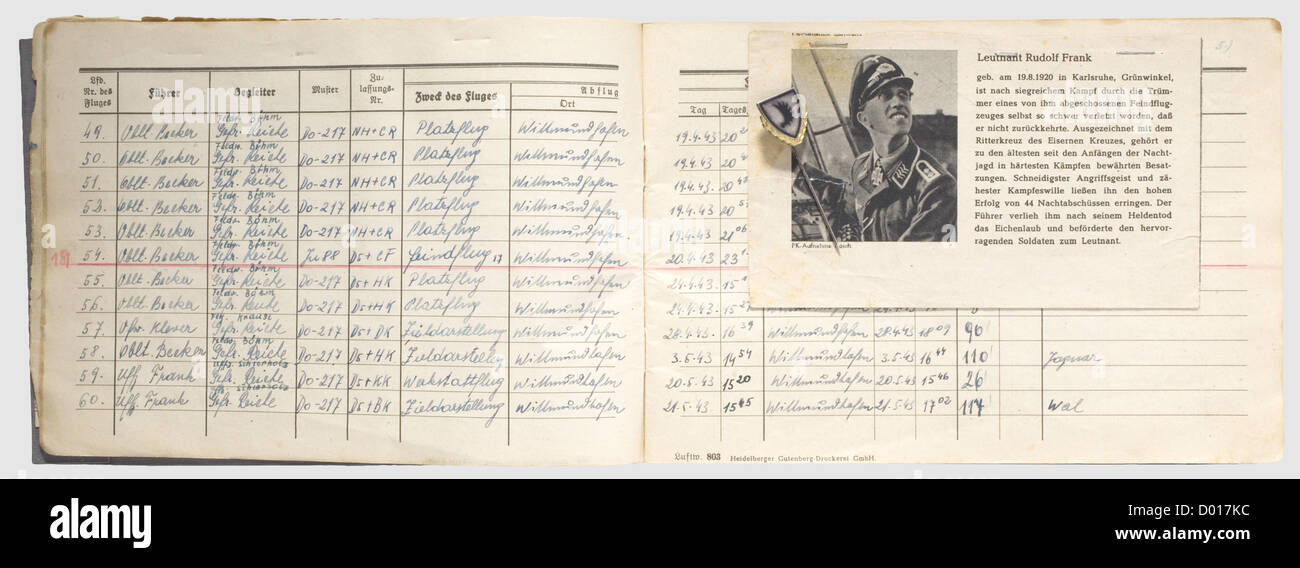 Lfd. Nr. des Fluges Führer Begleiter Muster Zulassungs-Nr. Zweck des Fluges Abflug
Ort
Tag Tages
Feldw. Böhm
49. Oblt. Becker Gefr. Reiche Do-217 NH+CR Platzflug Wittmundhafen 19.4.43
Feldw. Böhm
50. Oblt. Becker Gefr. Reiche Do-217 NH+CR Platzflug Wittmundhafen 19.4.43
Feldw. Böhm
51. Oblt. Becker Gefr. Reiche Do-217 NH+CR Platzflug Wittmundhafen 19.4.43
Feldw. Böhm
52. Oblt. Becker Gefr. Reiche Do-217 NH+CR Platzflug Wittmundhafen 19.4.43
Feldw. Böhm
53. Oblt. Becker Gefr. Reiche Do-217 NH+CR Platzflug Wittmundhafen 19.4.43 21 06
Feldw. Böhm
54. Oblt. Becker Gefr. Reiche Ju 88 D5+CF Feindflug 17 Wittmundhafen 20.4.43
Feldw. Böhm
55. Oblt. Becker Gefr. Reiche Do-217 D5+HK Platzflug Wittmundhafen 24.4.43
Feldw. Böhm
56. Oblt. Becker Gefr. Reiche Do-217 D5+HK Platzflug Wittmundhafen 24.4.43
57. Klever Gefr. Reiche Do-217 D5+DK Zieldarstellung Wittmundhafen 28.4.43 16 39 Wittmundhafen 28.4.43 18 09 96
Feldw. Böhm
58. Oblt. Becker Gefr. Reiche Do-217 D5+HK Zieldarstellung Wittmundhafen 3.5.43 14 54 Wittmundhafen 3.5.43 16 44 110 Jaguar
59. Uff. Frank Gefr. Reiche Do-217 D5+KK Werkstattflug Wittmundhafen 20.5.43 15 20 Wittmundhafen 20.5.43 15 46 26
60. Uff. Frank Gefr. Reiche Do-217 D5+BK Zieldarstellung Wittmundhafen 21.5.43 15 05 Wittmundhafen 21.5.43 17 02 117 Wal
Luftw. 803 Heidelberger Gutenberg-Druckerei GmbH.
Leutnant Rudolf Frank
geb. am 19.8.1920 in Karlsruhe, Grünwinkel,
ist nach siegreichem Kampf durch die Trüm-
mer eines von ihm abgeschossenen Feindflug-
zeuges selbst so schwer verletzt worden, daß
er nicht zurückkehrte. Ausgezeichnet mit dem
Ritterkreuz des Eisernen Kreuzes, gehört er
zu den ältesten seit den Anfängen der Nacht-
jagd in härtesten Kämpfen bewährten Besat-
zungen. Schneidigster Angriffsgeist und zä-
hester Kampfeswille ließen ihn den hohen
Erfolg von 44 Nachtabschüssen erringen. Der
Führer verlieh ihm nach seinem Heldentod
das Eichenlaub und beförderte den hervor-
ragenden Soldaten zum Leutnant.
PK-Aufnahme
alamy
Image ID: D017KC
www.alamy.com